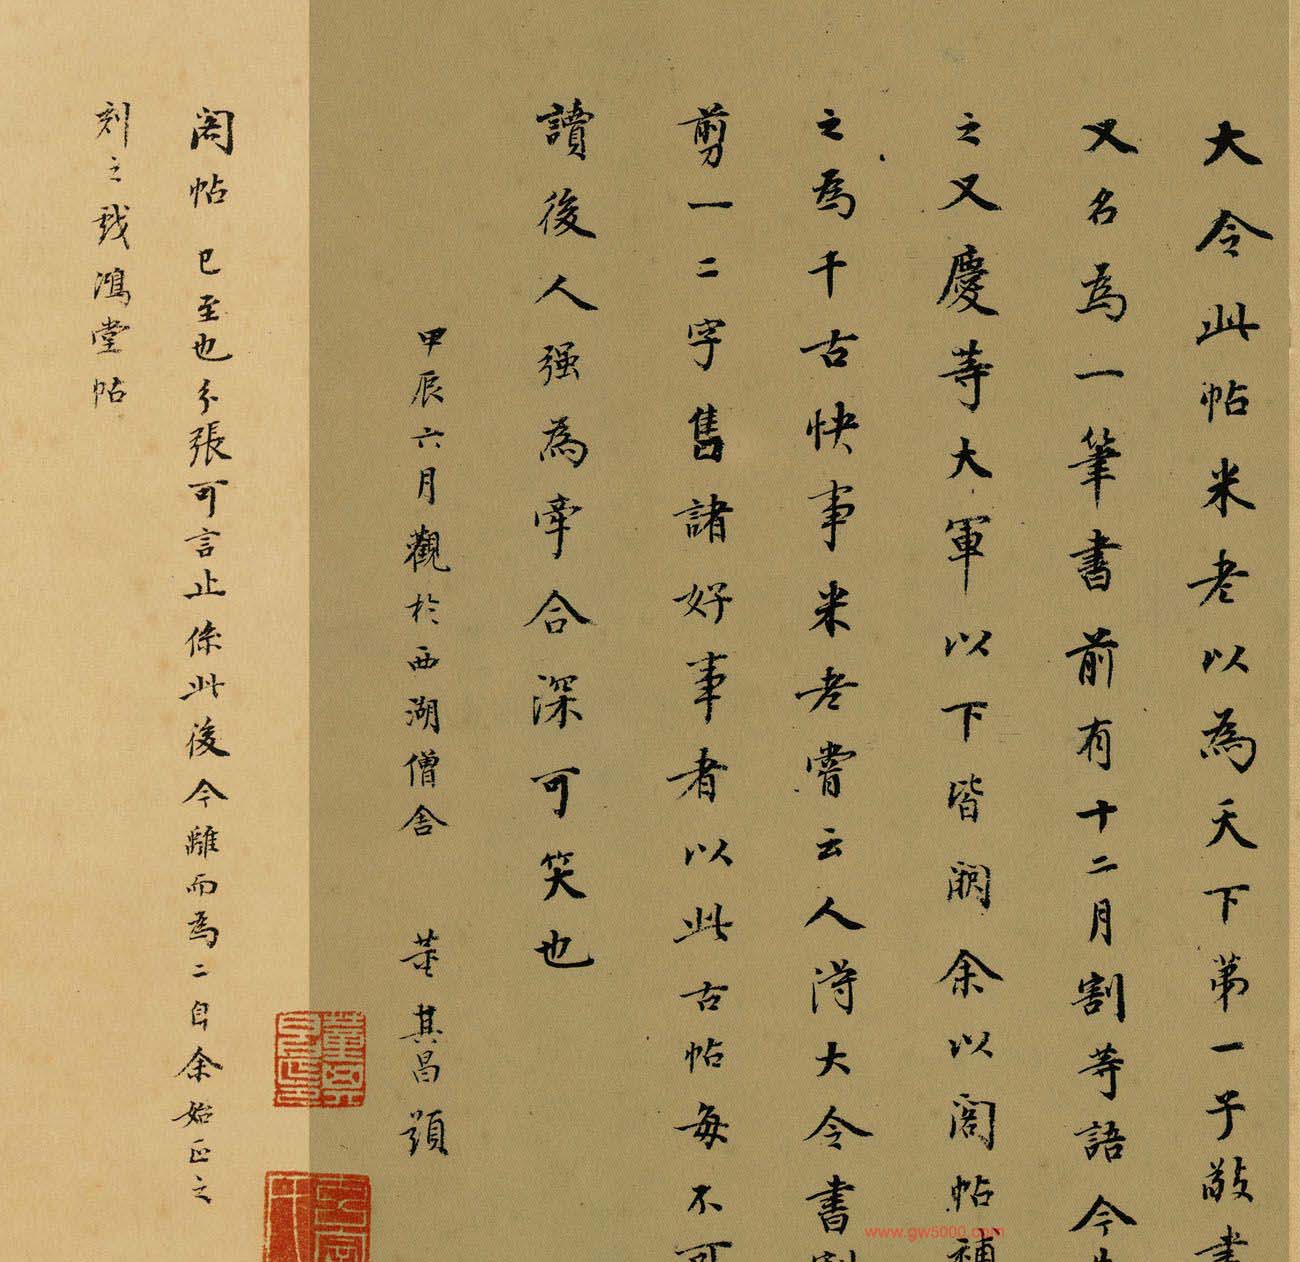 大令此帖米老以為天下第一子敬書
又名為一筆書前有十二月割等語今
之又慶等大軍以下皆闕余以閣帖補
之為千古快事米老嘗云人得大令書割
剪一二字售諸好事者以此古帖每不可
讀後人强為牽合深可笑也
甲辰六月觀於西湖僧舍 董其昌題
閣帖已至也分張可言止係此後今離而為二自余始正之
刻之戲鴻堂帖
www.gw5000.com